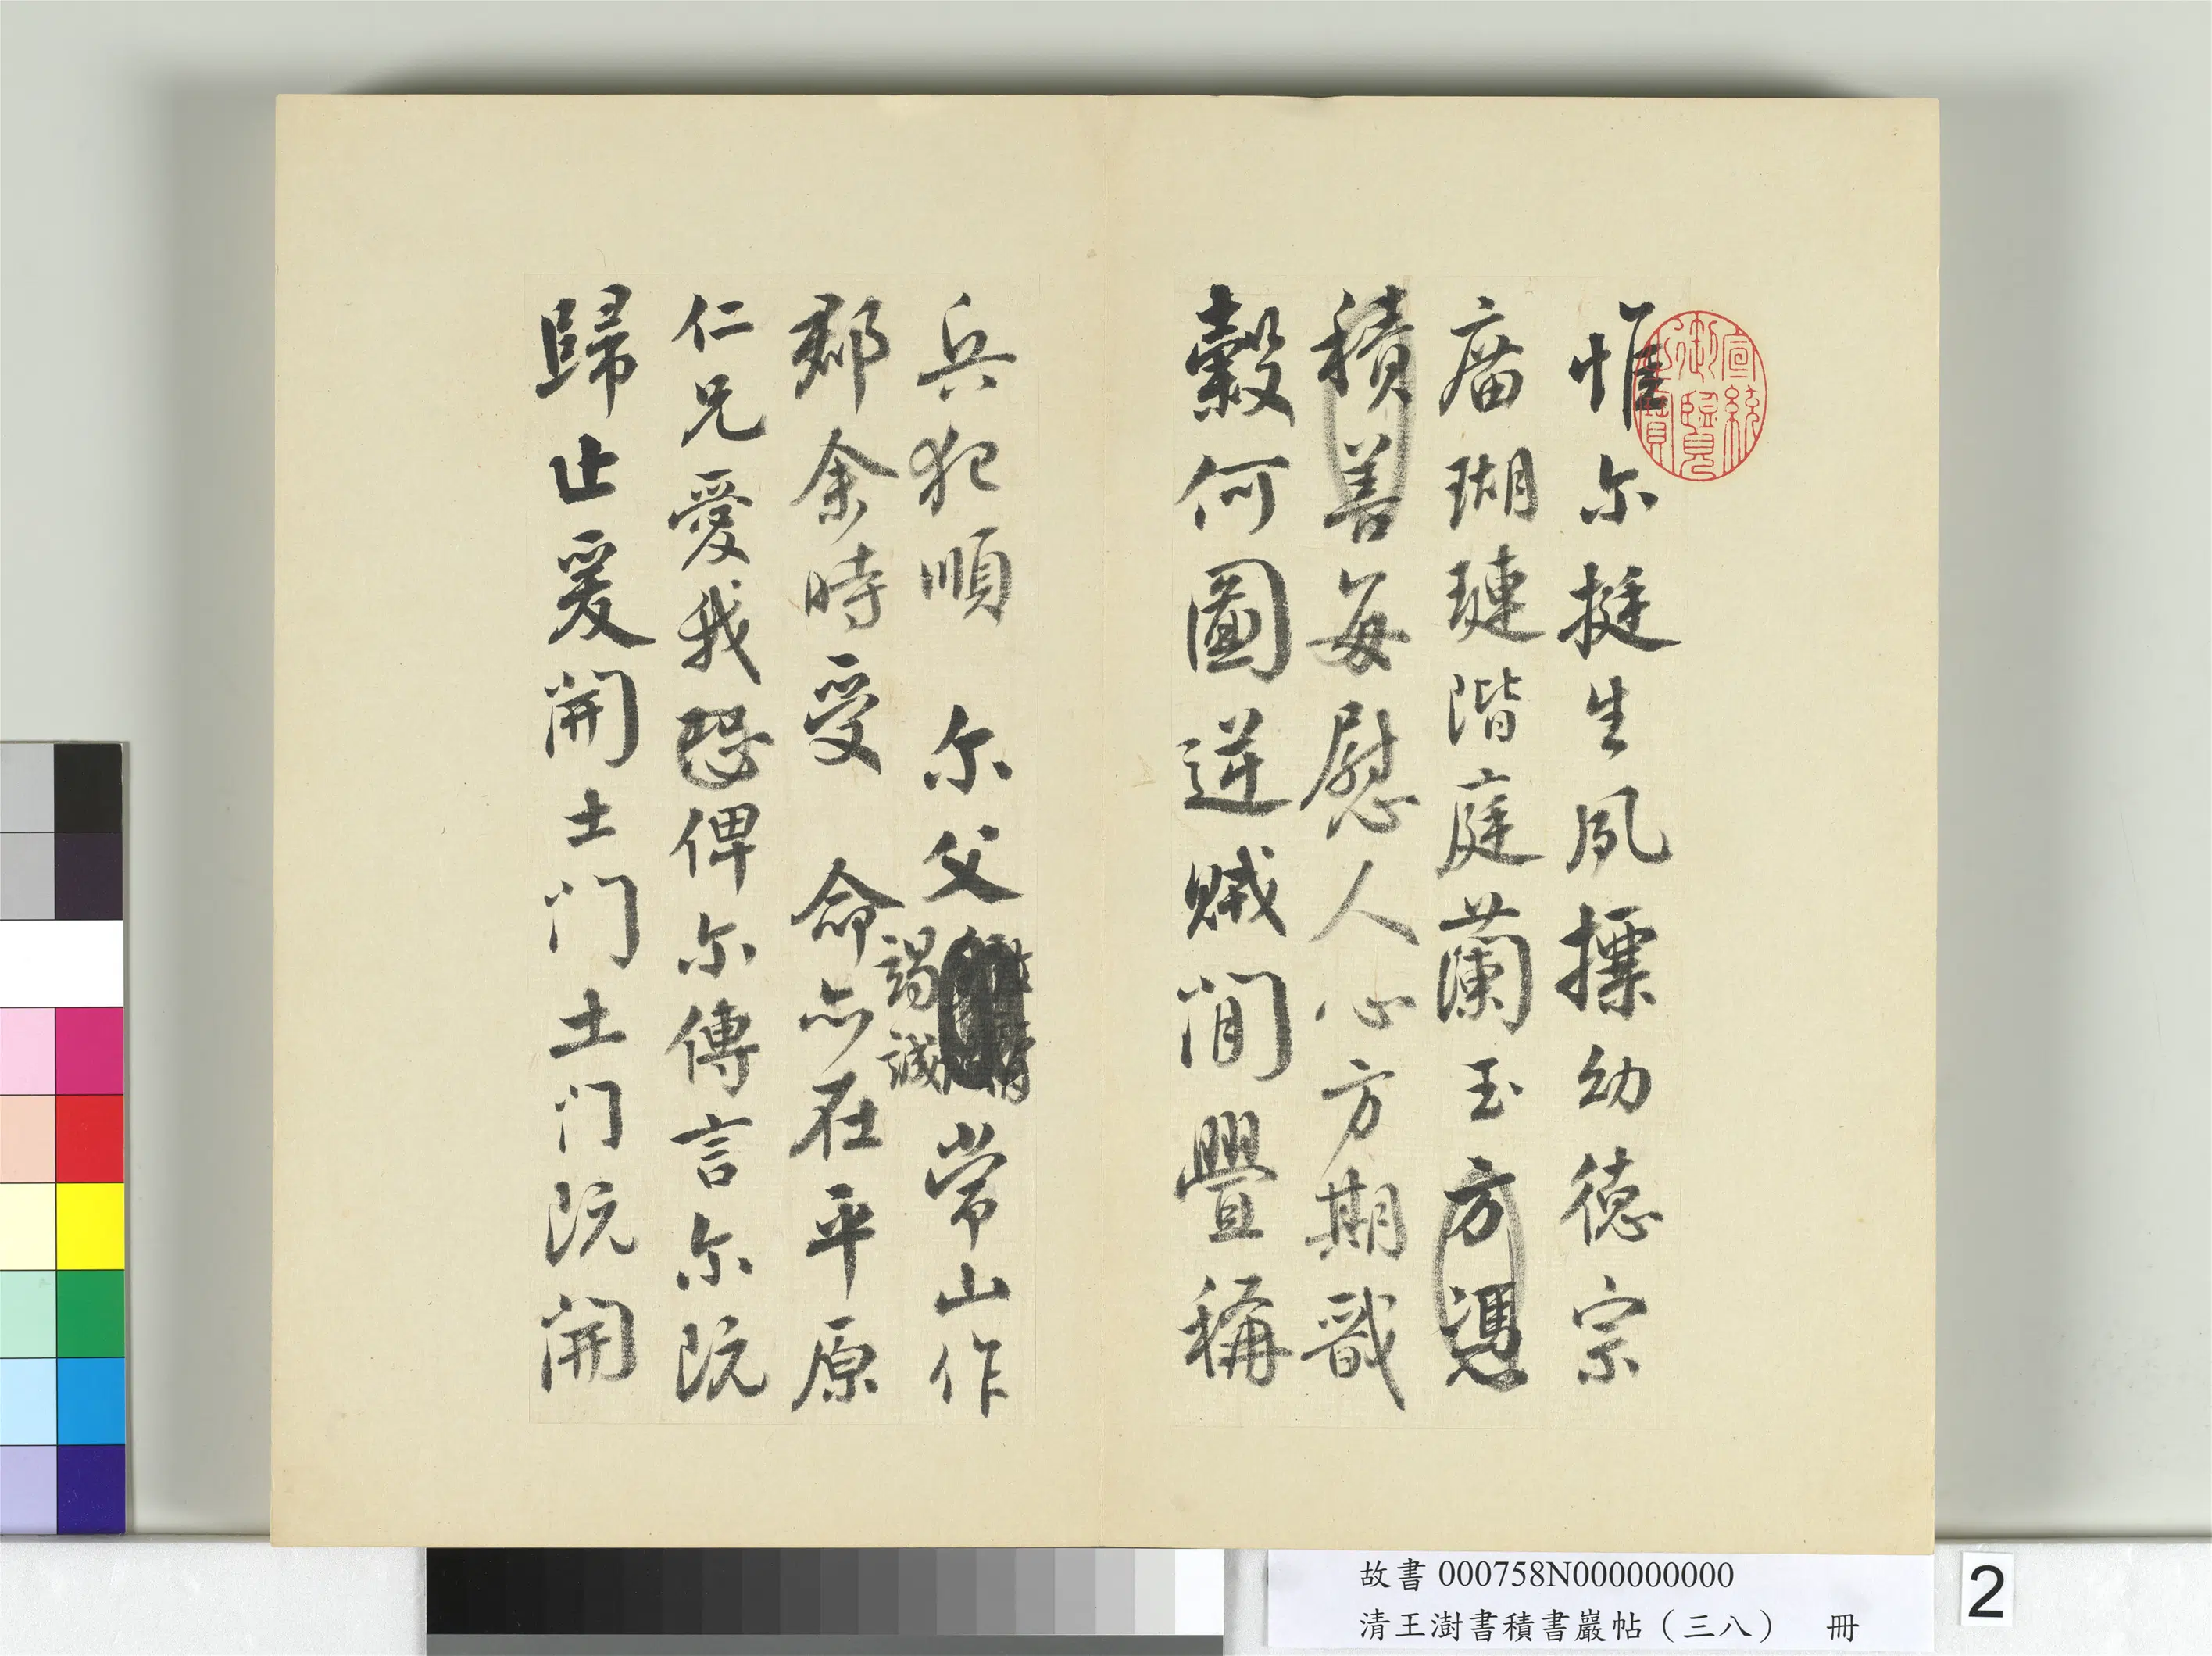 惟尔挺生夙摽幼德宗
廟瑚璉階庭蘭玉方憑
積善每慰人心方期戩
穀何圖逆賊閒舋稱
兵犯順尔父
竭誠
常山作
郡余時受命亦在平原
仁兄愛我恐俾尔傳言尔既
歸止爰開土门土门既開
宣統御覽之寶
故書 000758N000000000
清王澍書積書巖帖（三八） 冊
2